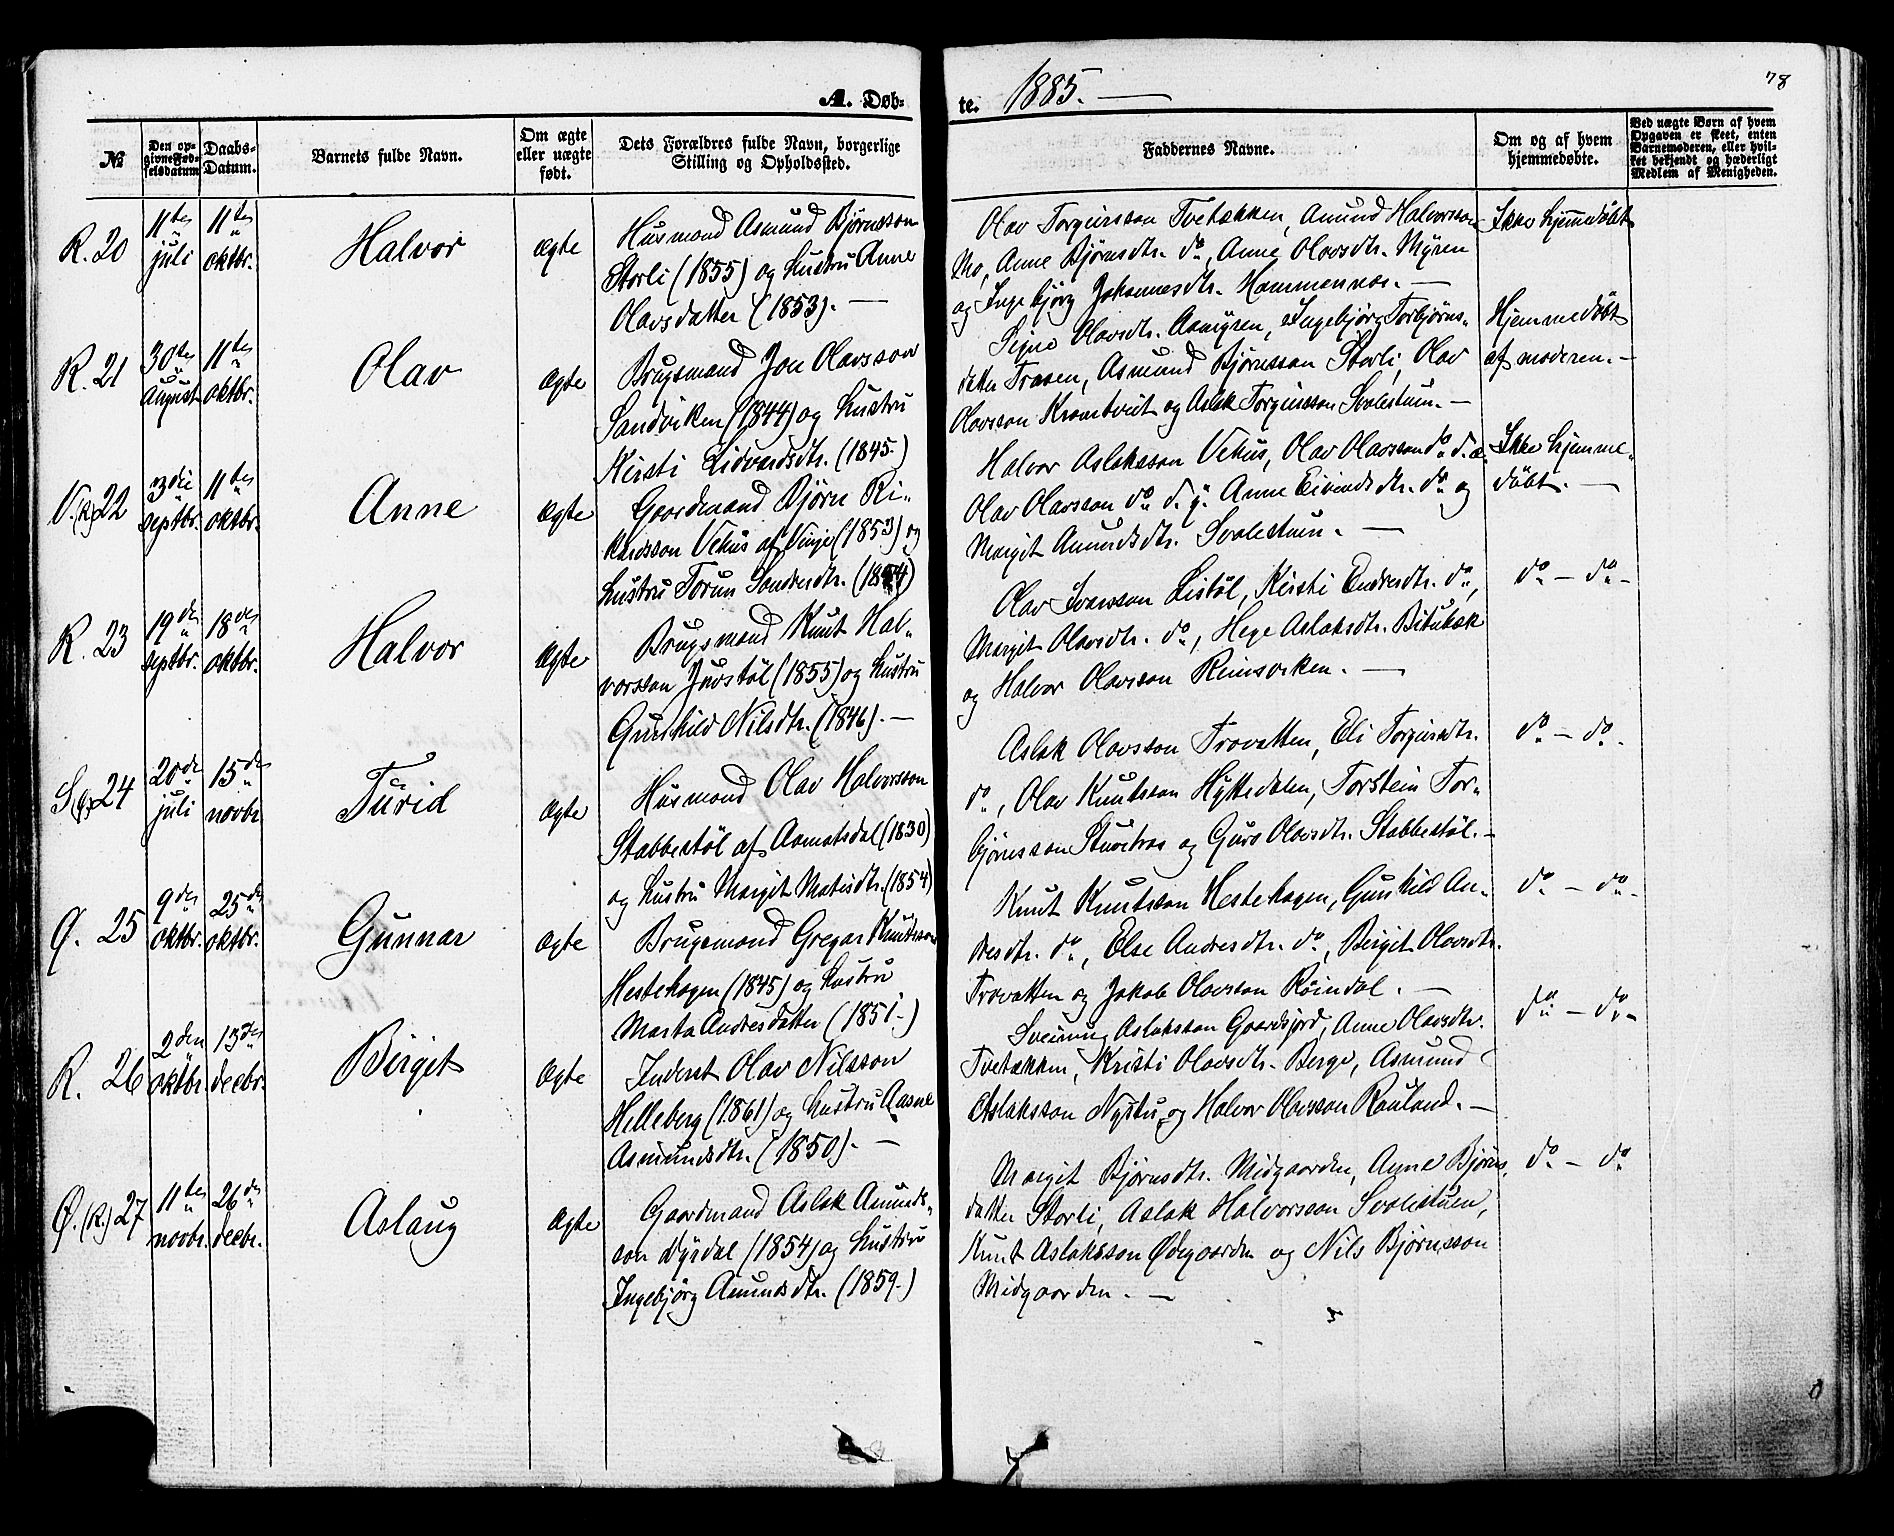 A. Døb-
te. 1885. —
78
№
Den op-
givne Fød-
selsdatum
Daabs-
Datum.
Barnets fulde Navn.
Om ægte
eller uægte
født.
Dets Forældres fulde Navn, borgerlige
Stilling og Opholdssted.
Faddernes Navne.
Om og af hvem
hjemmedøbte.
Ved uægte Børn af hvem
Opgaven er skeet, enten
Barnemoderen, eller hvil-
ket bekjendt og hæderligt
Medlem af Menigheden.
R. 20
11te
juli
11te
oktbr.
Halvor
Ægte
Husmand Asmund Bjørnsson
Storli (1855) og hustru Anne
Olavsdatter (1853). —
Olav Torgiursson Tvetækken, Amund Halvorsson
Mo, Anne Bjørnsdtr. do, Anne Olavsdtr. Myren
og Ingebjørg Johannesdtr. Hammernæs. —
Ikke hjemmedøbt
R. 21
30te
august
11te
oktbr.
Olav
Ægte
Brugsmand Jon Olavsson
Sandviken (1844) og hustru
Kirsti Eidvardsdtr. (1845.)
Signe Olavsdtr. Aamyren, Ingebjørg Torbjørns-
datter Traaen, Asmund Bjørnsson Storli, Olav
Olavsson Kromtveit og Aslak Torgiursson Svalestuen. —
Hjemmedøbt
af moderen. —
V.(R.) 22
3die
septbr.
11te
oktbr.
Anne
Ægte
Gaardmand Bjørn Ri-
kardsson Vehus af Vinje (1853) og
hustru Torun Sondresdtr. (1854)
Halvor Aslaksson Vehus, Olav Olavsson do d. æ.
Olav Olavsson do d. y. Anne Eivindsdtr. do og
Margit Amundsdtr. Svalestuen. —
Ikke hjemme-
døbt. —
R. 23
19de
septbr.
18de
oktbr.
Halvor
Ægte
Brugsmand Knut Hal-
vorsson Juvstøl (1855) og hustru
Gunhild Nilsdtr. (1846). —
Olav Ivarsson Listøl, Kirsti Endresdtr. do,
Margit Olavsdtr. do, Hege Aslaksdtr. Bitubæk
og Halvor Olavsson Rimsviken. —
do — do —
24
20de
juli
15de
novbr.
Turid
Ægte
Husmand Olav Halvorsson
Stabbestøl af Aamotsdal (1830)
og hustru Margit Matisdtr. (1854)
Aslak Olavsson Trovatten, Eli Torgiursdtr.
do, Olav Knutsson Hyttedalen, Torstein Tor-
bjørnsson Stuvetraa og Guro Olavsdtr. Stabbestøl. —
do — do —
Ø. 25
9de
oktbr.
25de
oktbr.
Gunnar
Ægte
Brugsmand Gregar Knutsson
Hestehagen (1845) og hustru
Marta Andresdatter (1851.)
Knut Knutsson Hestehagen, Gunhild An-
dresdtr. do, Else Andresdtr. do, Birgit Olavsdtr.
Trovatten og Jakob Olavsson Røindal. —
do — do —
R. 26
2den
oktbr.
13de
decbr.
Birgit
Ægte
Inderst Olav Nilsson
Helleberg (1861) og hustru Aasne
Asmundsdtr. (1850). —
Sveinung Aslaksson Gaardsjord, Anne Olavsdtr.
Tvetækken, Kristi Olavsdtr. Berge, Asmund
Aslaksson Nystu og Halvor Olavsson Rauland. —
do — do —
Ø. (R.) 27
11te
novbr.
26de
decbr.
Aslaug
Ægte
Gaardmand Aslak Amunds-
son Dyrdal (1854) og hustru
Ingebjørg Amundsdtr. (1859.)
Margit Bjørnsdtr. Midgaarden, Anne Bjørns-
datter Storli, Aslak Halvorsson Svalestuen,
Knut Aslaksson Ødegaarden og Nils Bjørnsson
Midgaarden. —
do — do